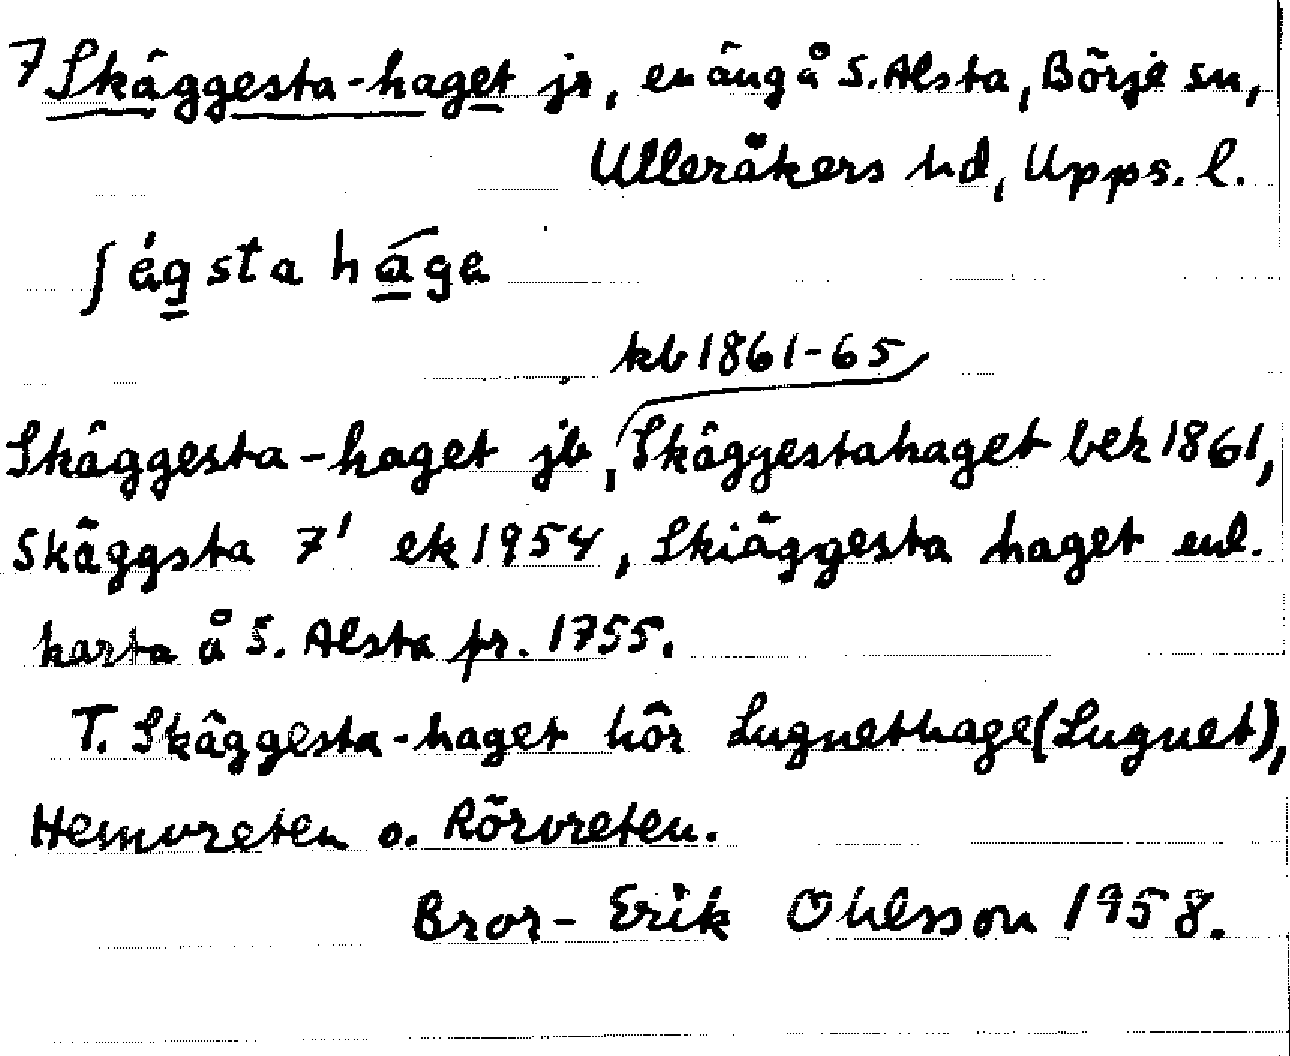 7 Skäggesta-haget jr, en äng å S. Alsta, Börje sn,
Ulleråkers hd, Upps. l.
ʃägsta háge
kb 1861-65
Skäggesta-haget jb, Skäggestahaget bek 1861,
Skäggsta 7¹ ek 1954, Skiäggesta haget enl.
karta å S. Alsta fr. 1755.
T. Skäggesta-haget hör Lugnethage (Lugnet),
Hemvreten o. Rörvreten.
Bror-Erik Ohlsson 1958.